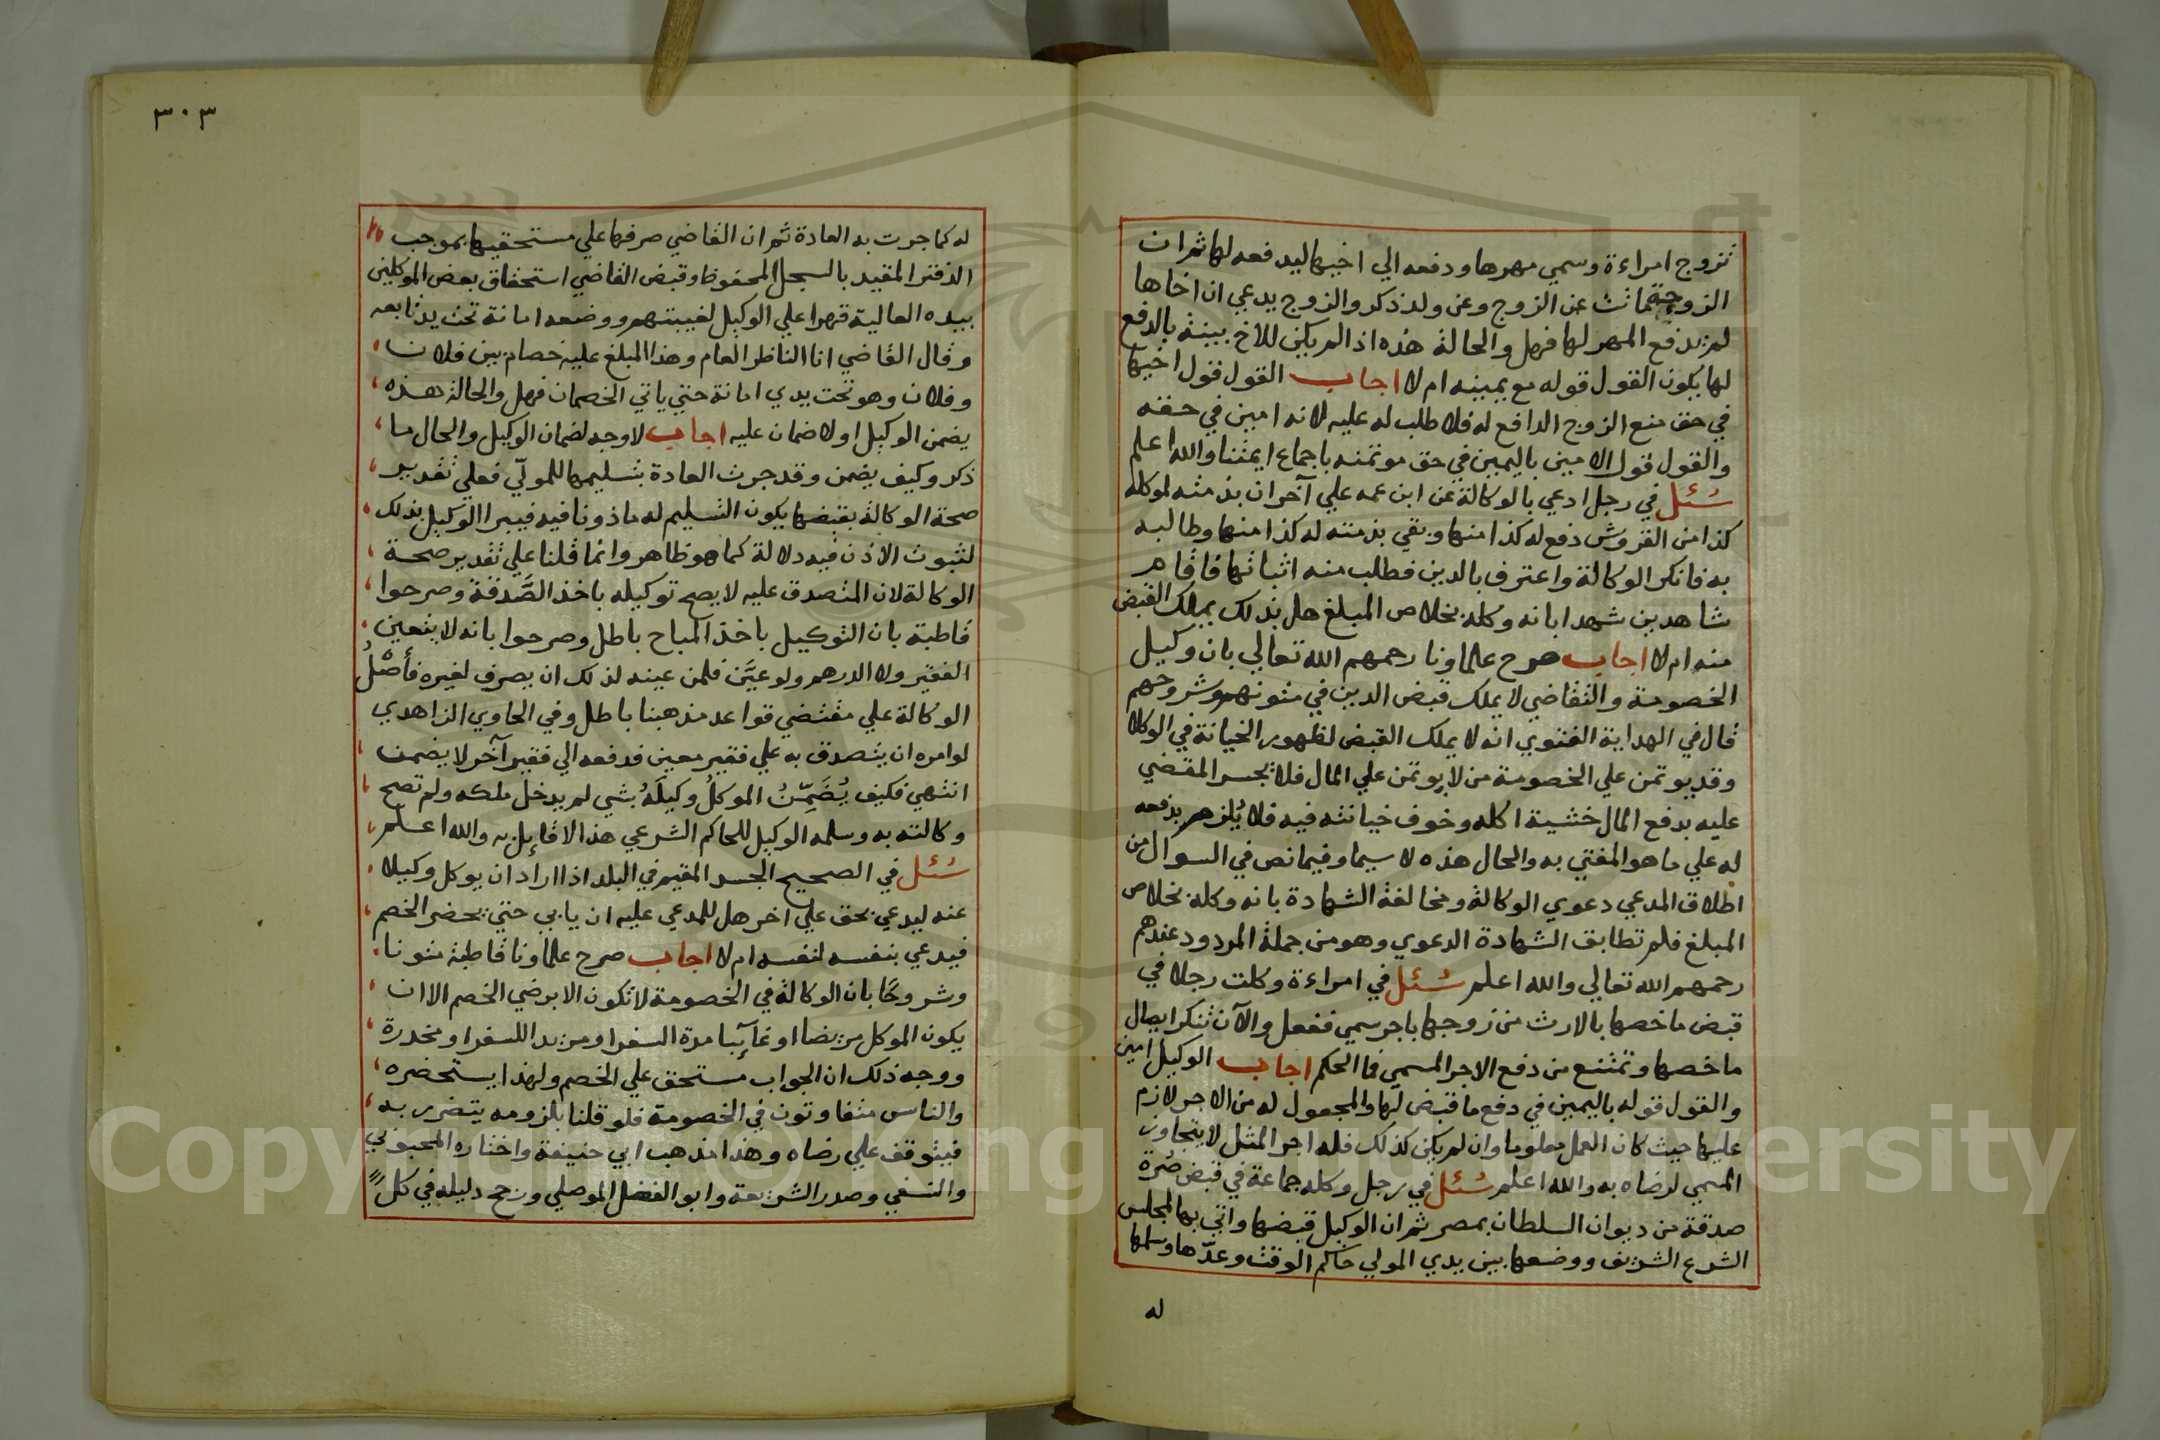 تزوج امراءة وسمي مهرها ودفعه الي اخيها ليدفعه لها ثم ان
الزوجة ماتت عن الزوج وعن ولد ذكر والزوج يدعي ان اخاها
لم يدفع المهر لها فهل والحالة هذه اذا لم يكن للاخ ببينة بالدفع
لها يكون القول قوله مع يمينه ام لا اجاب القول قول اخيها
في حق منع الزوج الدافع له فلا طلب له عليه لانه امين في حقه
والقول قول الامين باليمين في حق موتمنه باجماع ايمتنا والله اعلم
سُئل في رجل ادعي بالوكالة عن ابن عمه علي آخر ان بذمته لموكله
كذا من القروش دفع له كذا منها وبقي بذمته له كذا منها وطالبه
به فانكر الوكالة واعترف بالدين فطلب منه اثباتها فاقام
شاهدين شهدا بانه وكله بخلاص المبلغ هل بذلك يملك القبض
منه ام لا اجاب صرح علماونا رحمهم الله تعالي بان وكيل
الخصومة والتقاضي لا يملك قبض الدين في متونهم وشروحهم
قال في الهداية الفتوي انه لا يملك القبض لظهور الخيانة في الوكلا
وقد يوتمن علي الخصومة من لا يوتمن علي المال فلا يجسر المقضي
عليه بدفع المال خشية اكله وخوف خيانته فيه فلا يُلزم بدفعه
له علي ما هو المفتي به والحال هذه لا سيما وفيما نص في السوال من
اطلاق المدعي دعوي الوكالة ومخالفة الشهادة بانه وكله بخلاص
المبلغ فلم تطابق الشهادة الدعوي وهو من جملة المردود عندهم
رحمهم الله تعالي والله اعلم سُئل في امراءة وكلت رجلا في
قبض ما خصها بالارث من زوجها باجر سمي ففعل والآن تنكر ايصال
ما خصها وتمتنع من دفع الاجر المسمي فما الحكم اجاب الوكيل امين
والقول قوله باليمين في دفع ما قبض لها والمجعول له من الاجر لازم
عليها حيث كان العمل معلوما وان لم يكن كذلك فله اجر المثل لا يتجاوز
المسمي لرضاه به والله اعلم سُئل في رجل وكله جماعة في قبض صُرة
صدقة من ديوان السلطان بمصر ثم ان الوكيل قبضها واتي بها لمجلس
الشرع الشريف ووضعها بين يدي المولي حاكم الوقت وعدّها وسلمها
له
٣٠٣
له كما جرت به العادة ثم ان القاضي صرفها علي مستحقيها بموجب
الدفتر المقيد بالسجل المحفوظ وقبض القاضي استحقاق بعض الموكلين
بيده العالية قهرا علي الوكيل لغيبتهم ووضعه امانة تحت يد تابعه
وقال القاضي انا الناظر العام وهذا المبلغ عليه خصام بين فلان
وفلان وهو تحت يدي امانة حتي ياتي الخصمان فهل والحالة هذه
يضمن الوكيل اولا ضمان عليه اجاب لا وجه لضمان الوكيل والحال ما
ذكر وكيف يضمن وقد جرت العادة بتسليمها للمولّي فعلي تقدير
صحة الوكالة بقبضها يكون التسليم له ماذونا فيه فيبرا الوكيل بذلك
لثبوت الاذن فيه دلالة كما هو ظاهر وانما قلنا علي تقدير صحة
الوكالة لان المتصدق عليه لا يصح توكيله باخذ الصَّدقة وصرحوا
قاطبة بان التوكيل باخذ المباح باطل وصرحوا بانه لا يتعين
الفقير ولا الدرهم ولو عيَّن فلمن عينه لذلك ان يصرف لغيره فأصْلُ
الوكالة علي مقتضي قواعد مذهبنا باطل وفي الحاوي الزاهدي
لو امره ان يتصدق به علي فقير معين فدفعه الي فقير آخر لا يضمن
انتهي فكيف يُضَمِّنُ الموكلُ وكيلَهُ بشي لم يدخل ملكه ولم تصح
وكالته به وسلمه الوكيل للحاكم الشرعي هذا لا قايل به والله اعلم
سُئل في الصحيح الجسد المقيم في البلد اذا اراد ان يوكل وكيلا
عنه ليدعي بحق علي اخر هل للمدعي عليه ان يابي حتي يحضر الخصم
فيدعي بنفسه لنفسه ام لا اجاب صرح علماونا قاطبة متونا
وشروحًا بان الوكالة في الخصومة لا تكون الا برضي الخصم الا ان
يكون الموكل مريضا او غايبا مدة السفر او مريدا للسفر او مخدرة
ووجه ذلك ان الجواب مستحق علي الخصم ولهذا يستحضره
والناس متفاوتون في الخصومة فلو قلنا بلزومه يتضرر به
فيتوقف علي رضاه وهذا مذهب ابي حنيفة واختاره المحبوبي
والنسفي وصدر الشريعة وابو الفضل الموصلي ورجح دليله في كل